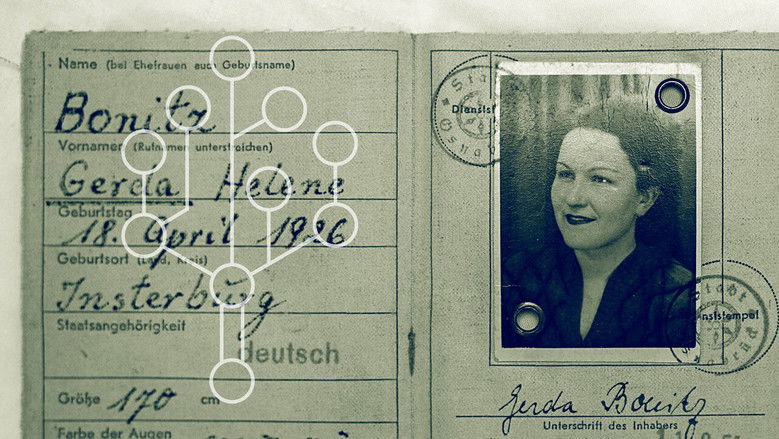 Name (bei Ehefrauen auch Geburtsname)
Bonitz
Vornamen (Rufnamen unterstreichen)
Gerda Helene
Geburtstag
18. April 1926
Geburtsort (Land, Kreis)
Insterburg
Staatsangehörigkeit
deutsch
Größe 170 cm
Farbe der Augen
Stadt
Dienstst
Stadt
nststempel
Gerda Bonitz
Unterschrift des Inhabers